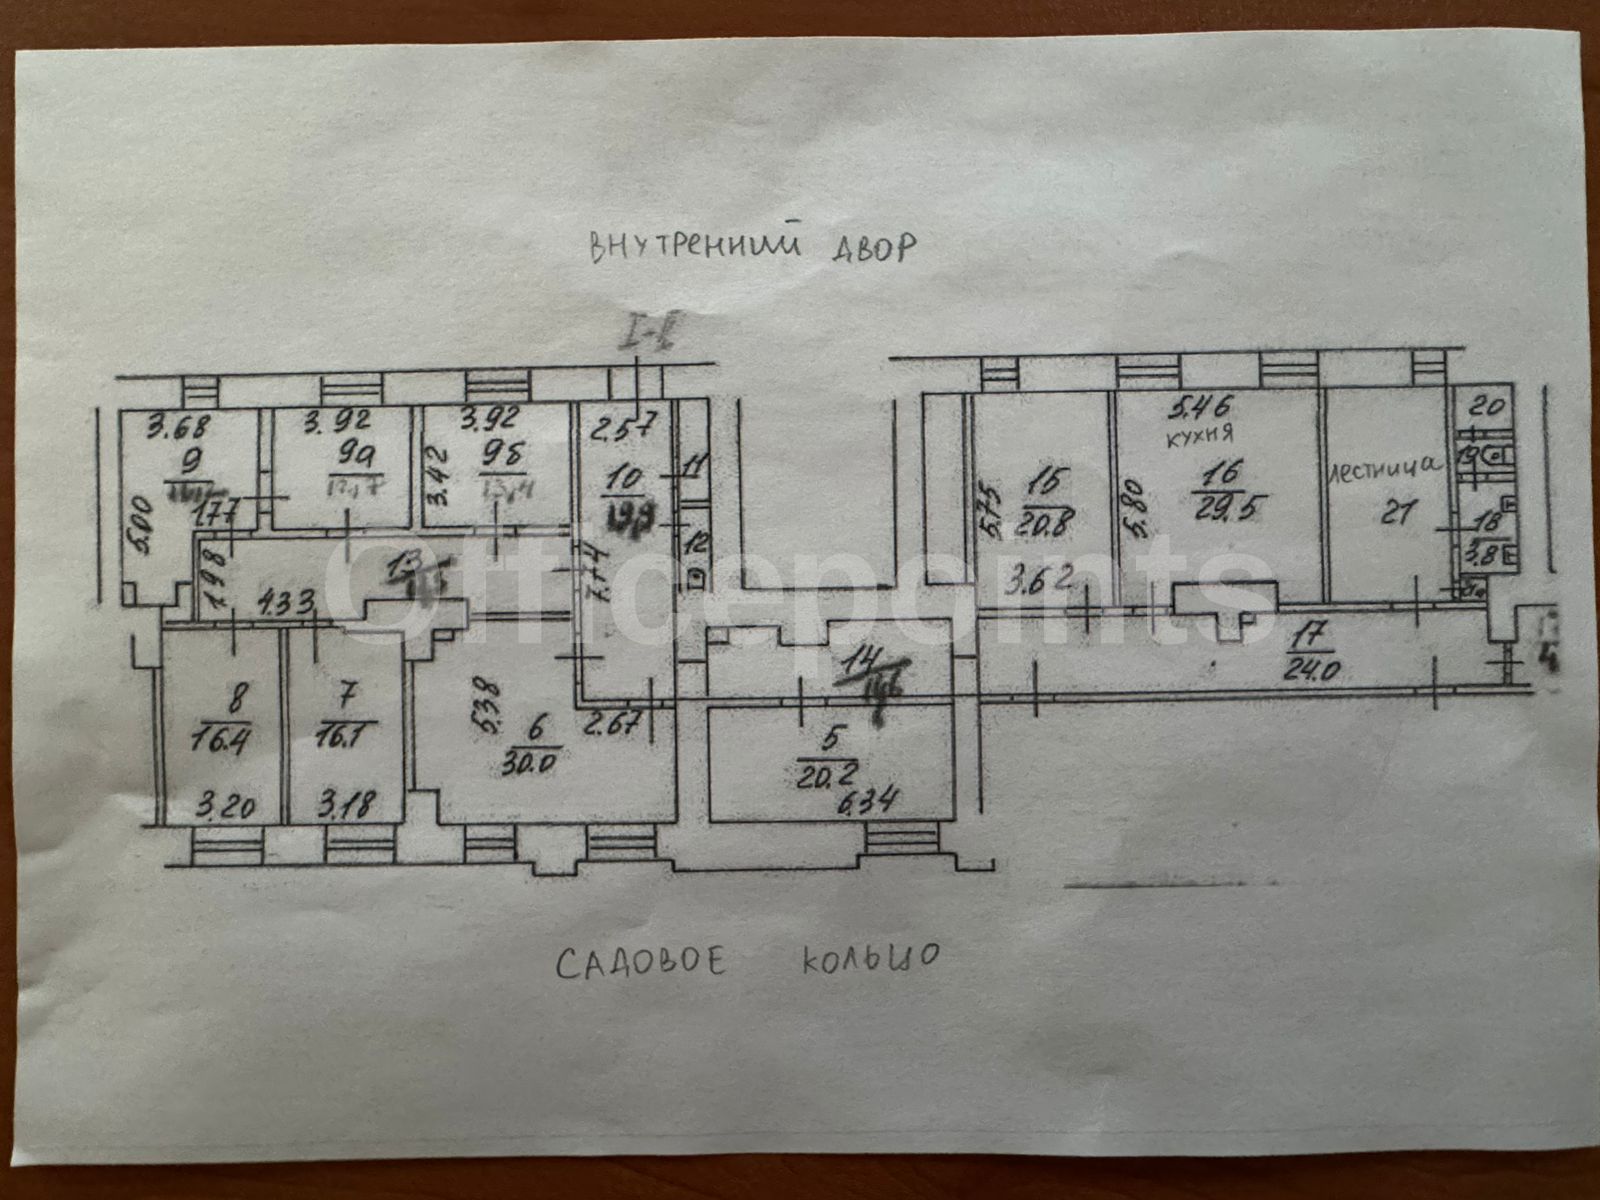 ВНУТРЕННИЙ ДВОР
I-I
3.68
9
1.77
5.00
3.92
9а
3.92
9б
13.4
3.42
2.57
10
19.9
7.74
11
12
1.98
4.33
13
5.75
15
20.8
3.62
5.46
кухня
16
29.5
5.80
лестница
21
20
19
18
3.8
21а
17
24.0
4
14
8
16.4
3.20
7
16.1
3.18
5.38
6
30.0
2.67
5
20.2
6.34
Officepoints
САДОВОЕ КОЛЬЦО